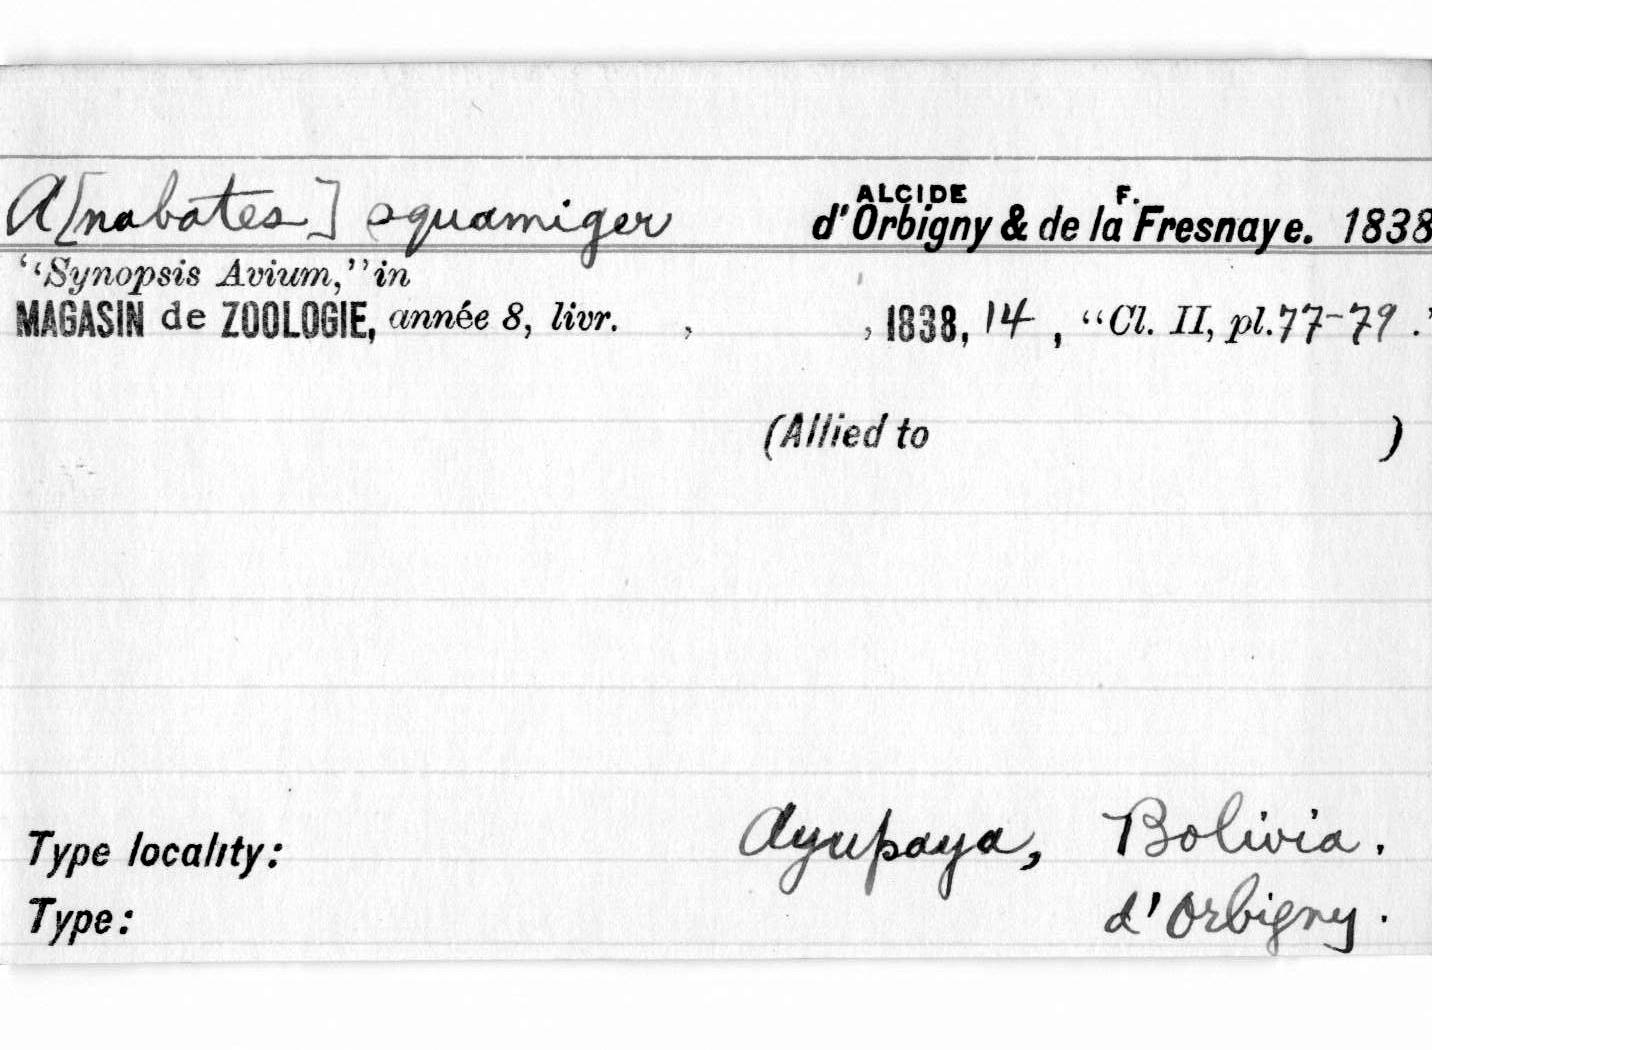 A[nabates] squamiger ALCIDE d'Orbigny & de la F. Fresnaye. 1838
"Synopsis Avium," in
MAGASIN de ZOOLOGIE, année 8, livr. , , 1838, 14 , "Cl. II, pl. 77-79 ."
(Allied to )
Type locality: Ayupaya, Bolivia.
Type: d'Orbigny.